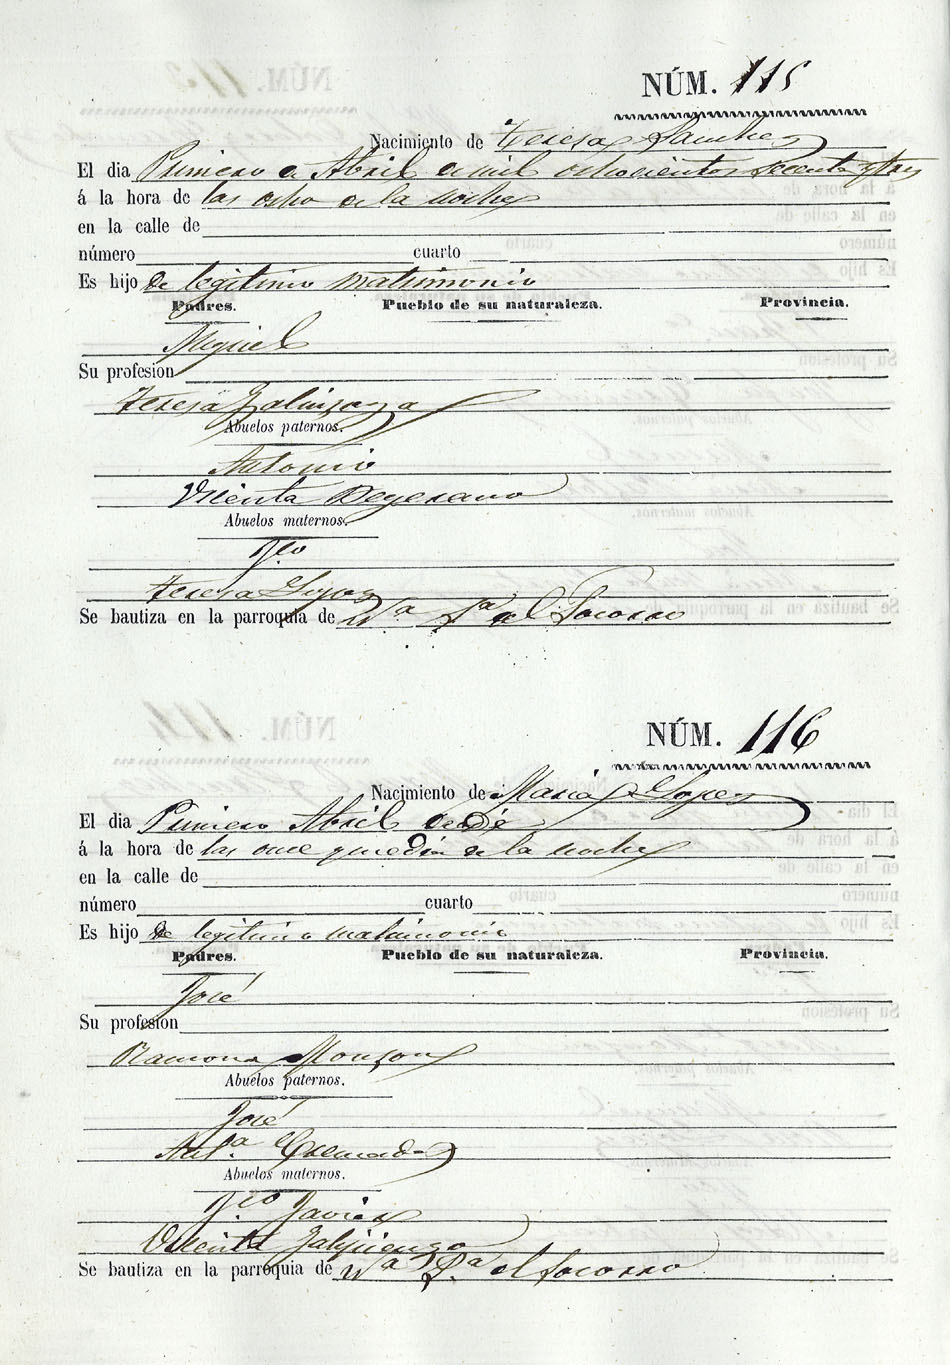 NÚM. 115
Nacimiento de Teresa Sanchez
El dia Primero de Abril de mil ochocientos secenta y tres
á la hora de las ocho de la noche
en la calle de
número cuarto
Es hijo de legitimo matrimonio
Padres. Pueblo de su naturaleza. Provincia.
Miguel
Su profesion
Teresa
Abuelos paternos.
Antonio
Vicenta
Abuelos maternos.
Fco
Teresa Lopez
Se bautiza en la parroquia de Na Sa del Socorro
NÚM. 116
Nacimiento de Maria Lopez
El dia Primero Abril de
á la hora de las once y media de la noche
en la calle de
número cuarto
Es hijo de legitimo matrimonio
Padres. Pueblo de su naturaleza. Provincia.
José
Su profesion
Ramona Monzon
Abuelos paternos.
José
Anta
Abuelos maternos.
Fco Javier
Vicenta
Se bautiza en la parroquia de Na Sa del Socorro